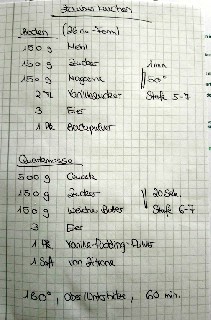 Boden (26er-Form)
150 g Mehl
150 g Zucker
150 g Margarine
1 min
60°
2 TL Vanillezucker
Stufe 5-7
3 Eier
1 Pk Backpulver
Quarkmasse
500 g Quark
150 g Zucker
20 Sek.
150 g weiche Butter
Stufe 6-7
3 Eier
1 Pk Vanille-Pudding-Pulver
1 Saft von Zitrone
180°, Ober/Unterhitze, 60 min.